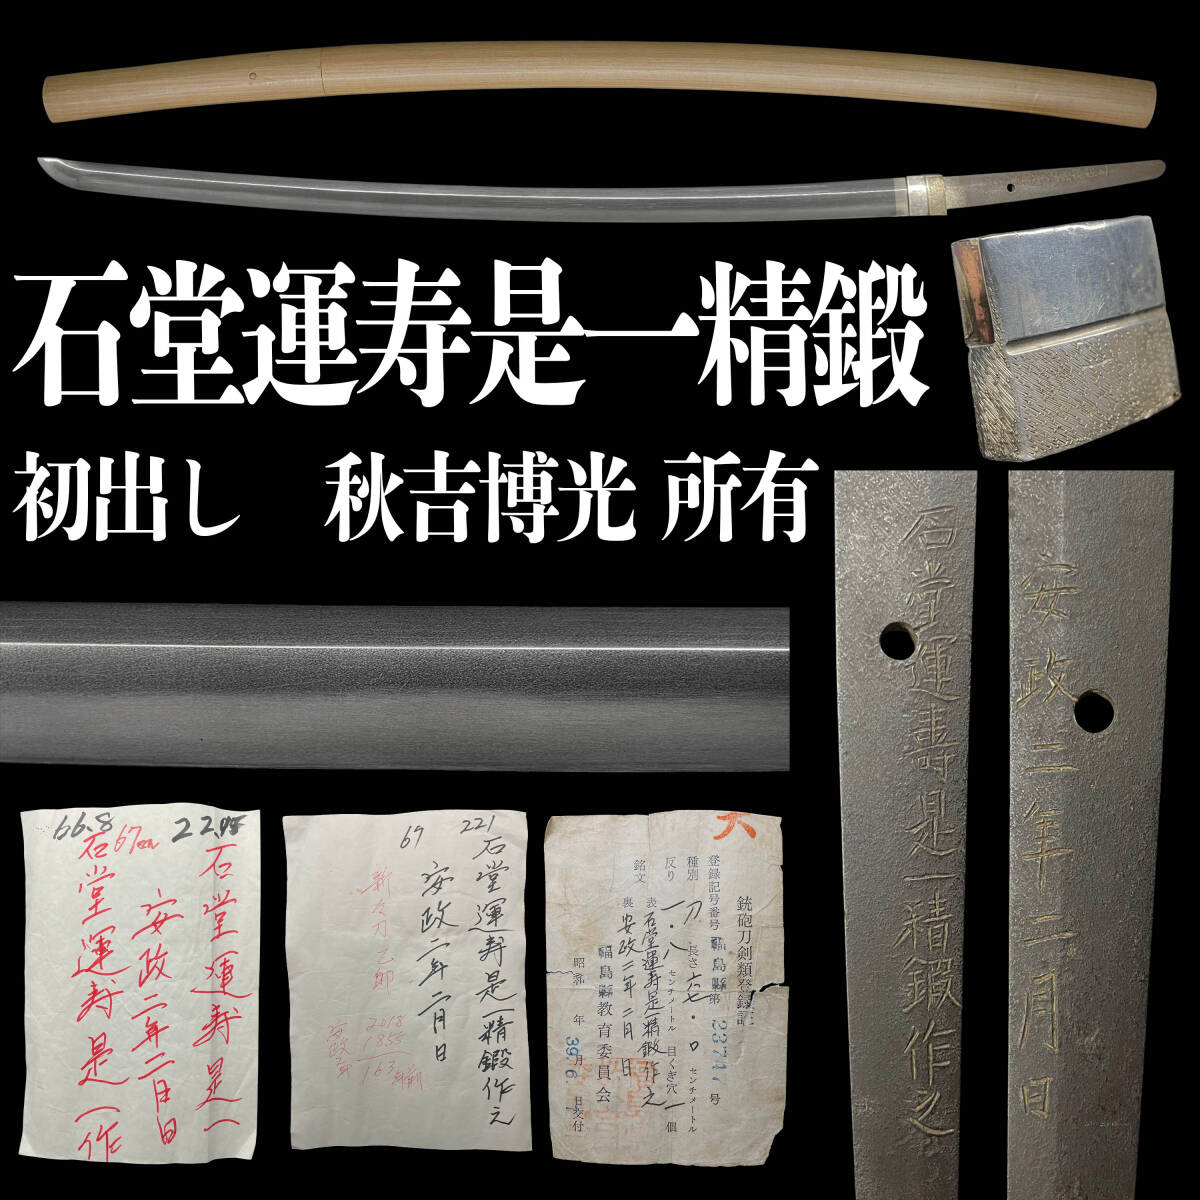 石堂運寿是一精鍛
初出し 秋吉博光 所有
石堂運壽是一精鍛作之
安政二年二月日
66.8 67cm 22.75
石堂運寿是一
安政二年二日日
石堂運寿是一作
67 221
石堂運寿是一精鍛作之
安政二年二月日
新々刀 乙節
2018
1855
163年前
安政二年
大
銃砲刀剣類登録証
登録記号番号 福島縣第 2374 号
種別 刀 長さ 六七・〇 センチメートル
反り 一・八 センチメートル 目くぎ穴 一 個
銘文 表 石堂運寿是一精鍛作之
裏 安政二年二月日
福島縣教育委員会
昭和 39年 6月 日交付